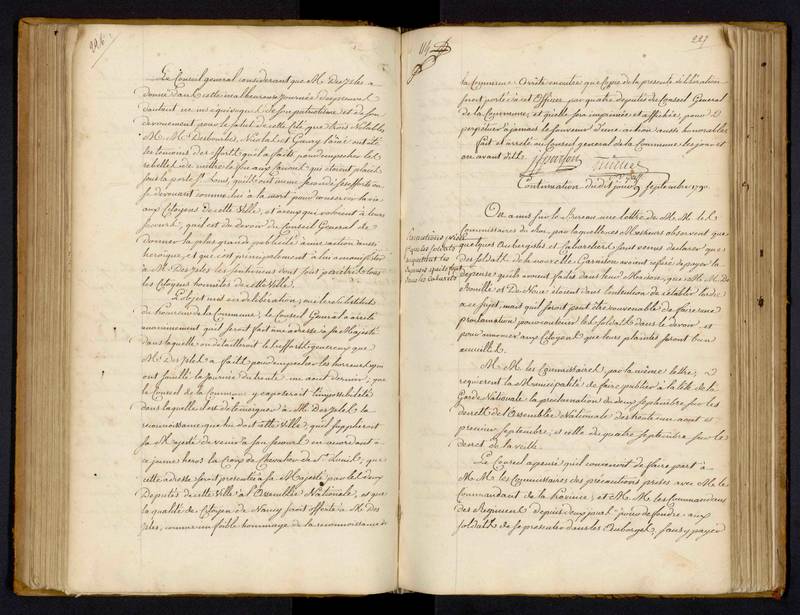 226.
Le Conseil general considerant que M. Des Isles a
donné dans cette malheureuse journée des preuves
d'autant moins equivoques de son patriotisme et de son
devouement pour le salut de cette Cité, que trois Notables
M. Mrs. Desbourbes, Nicolas, et Garry l'ainé ont été
les temoins des efforts qu'il a faits pour empecher les
rebelles de mettre le feu aux Canons qui etoient placés
sous la porte St. Louis, qu'ils ont meme secondé ses efforts en
se devouant comme lui à la mort pour conserver la vie
aux Citoyens de cette Ville, et à ceux qui voloient à leur
secours, qu'il est du devoir du Conseil General de
donner la plus grande publicité à une action aussi
heroique, et que c'est principalement à lui à manifester
à M. Des Isles les sentimens dont sont penétrés tous
les Citoyens honnetes de cette Ville.
L'objet mis en deliberation, ouï le substitut
du Procureur de la Commune, le Conseil General a arreté
unanimement qu'il seroit fait une adresse à sa Majesté
dans laquelle on détailleroit les efforts genereux que
M. Des Isles a faits pour empecher les horreurs qui
ont souillé la journée du trente un aout dernier; que
le Conseil de la Commune y exposeroit l'impossibilité
dans laquelle il est de temoigner à M. Des Isles la
reconnoissance que lui doit cette Ville, qu'il supplieroit
sa Majesté de venir à son secours en accordant à
ce jeune heros la Croix de Chevalier de St. Louis, que
cette adresse seroit presentée à sa Majesté par les deux
Deputés de cette Ville à l'Assemblée Nationale, et que
la qualité de Citoyen de Nancy seroit offerte à M. Des
Isles, comme un foible hommage de la reconnoissance de
227
la Commune. Arrete en outre que Copie de la presente déliberation
seroit portée à cet Officier par quatre deputés du Conseil General
de la Commune, et qu'elle sera imprimée et affichée, pour
perpetuer à jamais le souvenir d'une action aussi honorable
fait et arreté au Conseil general de la Commune les jour et
an avant dits.
Continuation du dit jour 9 septembre 1790.
On a mis sur le Bureau une lettre de M. M. les
Commissaires du Roi, par laquelle ces Messieurs observent que
quelques Aubergistes et Cabaretiers sont venus declarer que
des soldats de la nouvelle Garnison avoient refusé de payer la
depense qu'ils avoient faites dans leurs Maisons, que M. M. De
Bouillé et De Noue etoient dans l'intention de retablir l'ordre
à ce sujet, mais qu'il seroit peut être convenable de faire une
proclamation pour contenir les soldats dans le devoir et
pour annoncer aux Citoyens que leurs plaintes seront bien
accueillies.
M. M. les Commissaires, par la même lettre,
requierent la Municipalité de faire publier à la tête de la
Garde Nationale la proclamation du deux septembre sur les
decrets de l'Assemblée Nationale des trente un aout et
premier septembre, et celle du quatre septembre sur le
decret de la veille.
Le Conseil a pensé qu'il convenoit de faire part à
M. M. les Commissaires des precautions prises avec M. le
Commandant de la Province, et M. M. les Commandans
des Regimens depuis deux jours pour defendre aux
soldats de se presenter dans les Auberges, sans y payer